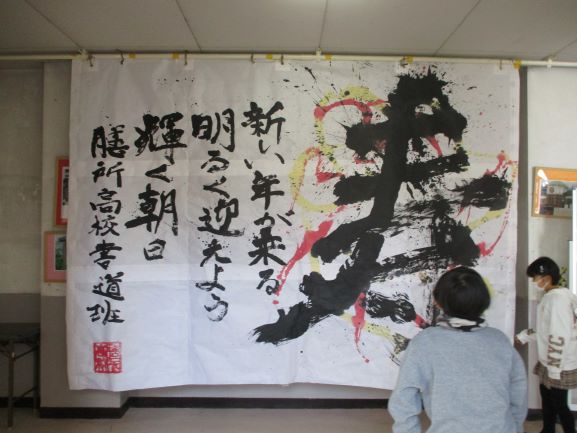 新い年が来る
明るく迎えよう
輝く朝日
膳所高校書道班
NYC